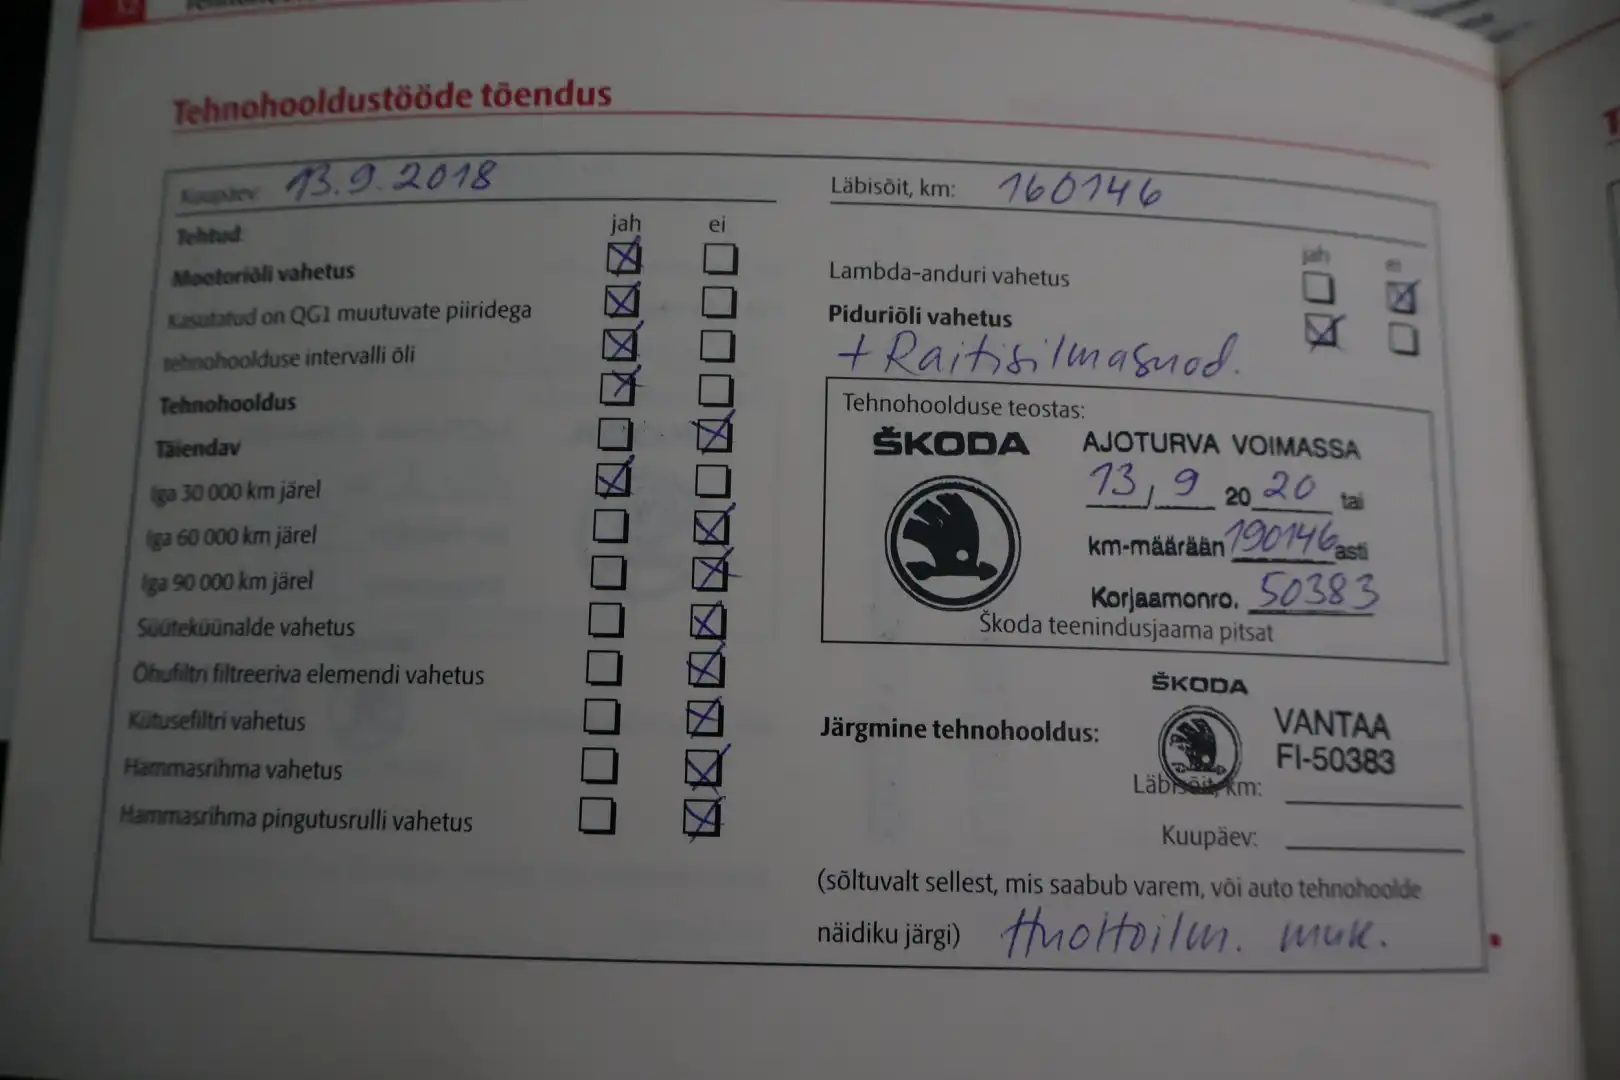 Tehnohooldustööde tõendus
Kuupäev: 13.9.2018
Läbisõit, km: 160146
Tehtud:
jah ei
Mootoriõli vahetus
Kasutatud on QG1 muutuvate piiridega
tehnohoolduse intervalli õli
Tehnohooldus
Täiendav
Iga 30 000 km järel
Iga 60 000 km järel
Iga 90 000 km järel
Süüteküünalde vahetus
Õhufiltri filtreeriva elemendi vahetus
Kütusefiltri vahetus
Hammasrihma vahetus
Hammasrihma pingutusrulli vahetus
jah ei
Lambda-anduri vahetus
Piduriõli vahetus
+ Raitisilmasuod.
Tehnohoolduse teostas:
ŠKODA
AJOTURVA VOIMASSA
13, 9 20 20 tai
km-määrään 190146 asti
Korjaamonro. 50383
Škoda teenindusjaama pitsat
ŠKODA
VANTAA
FI-50383
Järgmine tehnohooldus:
Läbisõit, km:
Kuupäev:
(sõltuvalt sellest, mis saabub varem, või auto tehnohoolde
näidiku järgi) Huoltoilm. muk.